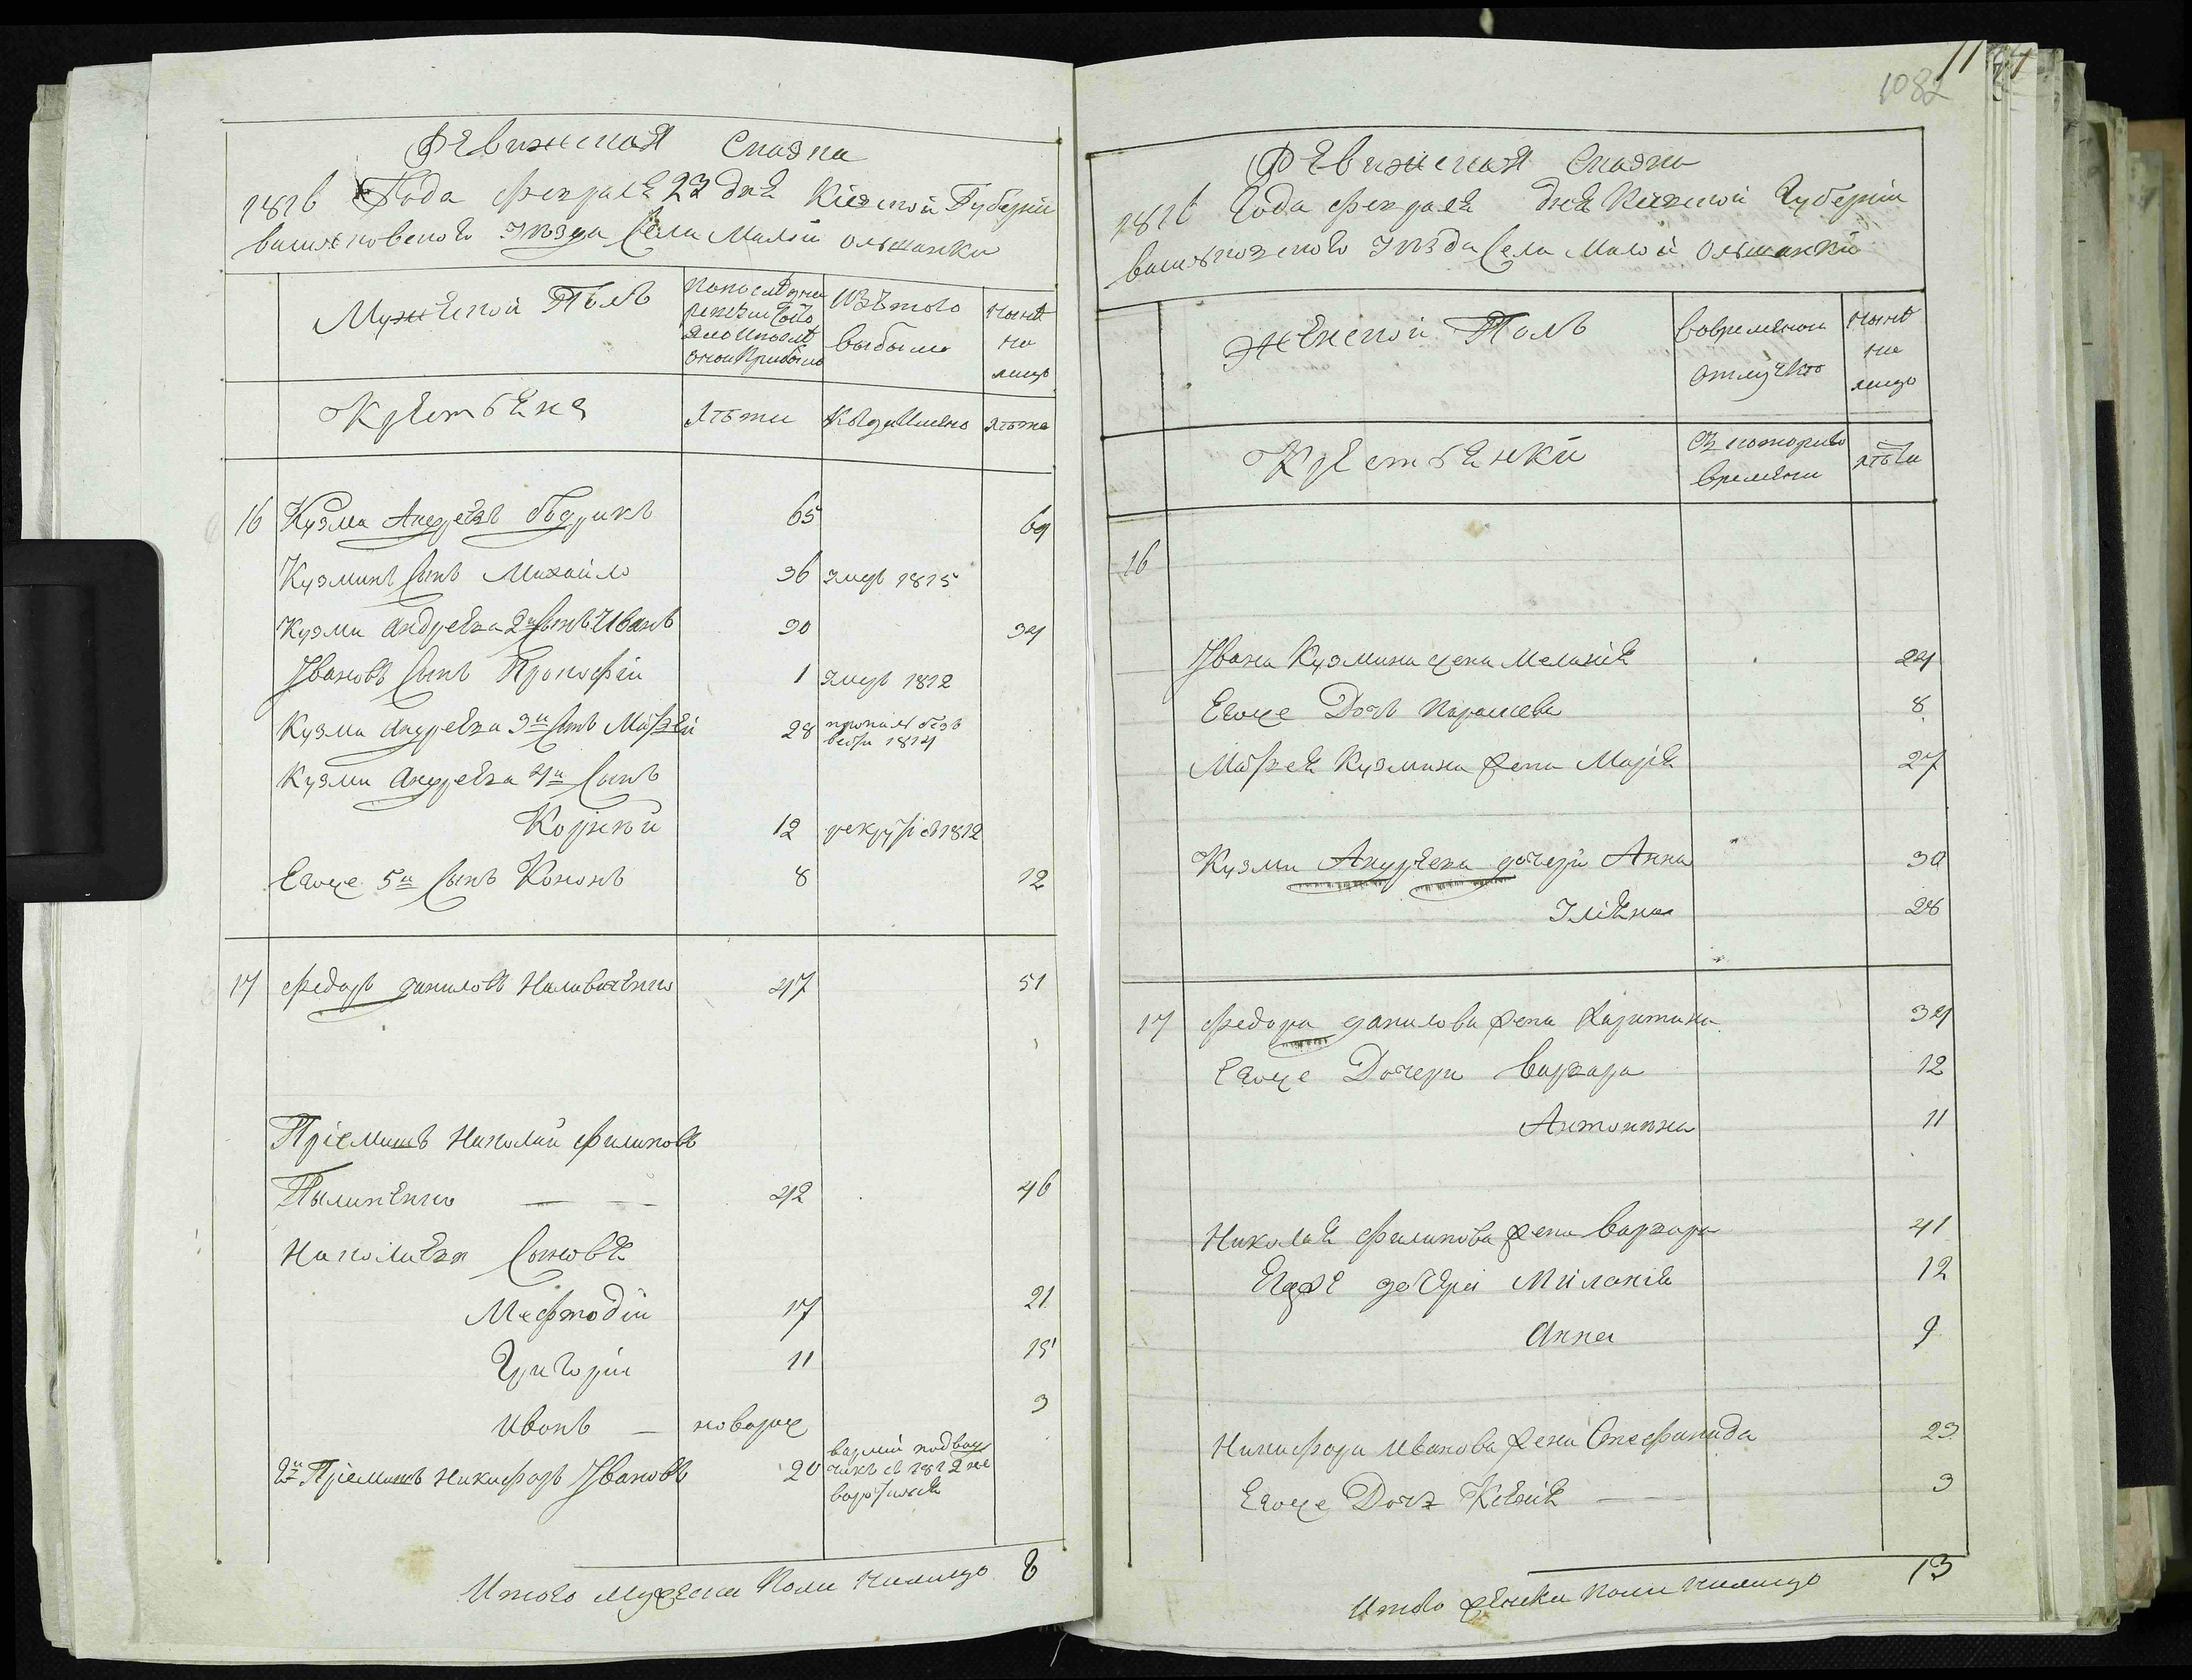 Ревижская Сказка
1816 Года февраля 23 дня Кіевской Губерніи
васильковского уѣзда Села Малой ольшанки
Мужеской Полъ
Попоследней ревизіи Состояло ипосле оной Прибыло
Изътого выбыло
ныне на лицо
Крестьяне
лѣты
Когда Имянно
лѣта
16 Кузма Андреевъ 65 69
Кузминъ Сынъ Михайло 36 умер 1815
Кузми андреева 2й Сынъ Иванъ 30 34
Ивановъ Сынъ Прокофій 1 умер 1812
Кузми андреева 3й Сынъ Матвей 28 пропалъ безъ вести 1814
Кузми андреева 4й Сынъ
Корнѣй 12 рекрут в 1812
Егоже 5й Сынъ Кононъ 8 12
17 федоръ даниловъ Наливайченко 47 51
Пріемишъ Николай филиповъ
Пылипенко — — 42 46
Николаева Сыновя
Мефтодій 17 21
Григорій 11 15
Иванъ — новорож 3
2й Пріемишъ Никифоръ Ивановъ 20 вармій подвод чикъ в 1812 не воротился
Итого мужеска пола налицо 8
1082
11
Ревижская Сказка
1816 Года февраля дня Кіевской Губерніи
васильковского уѣзда Села Малой Ольшанки
Женской Полъ
вовременной отлучкѣ
ныне на лицо
Крестьянки
Съ котораго времени
лѣта
16
Ивана Кузмина жена Меланія 24
Егоже Дочь Параскева 8
Матвея Кузмина жена Марія 27
Кузми Андреева дочери Анна 30
Уліяна 28
17 федора данилова жена Харитина 34
Егоже Дочери варвара 12
Антонина 11
Николая филипова жена варвара 41
Егоже дочери Миланія 12
Анна 9
Никифора Иванова жена Стефанида 23
Егоже Дочъ Ксенія — 3
Итого женска пола налицо 13